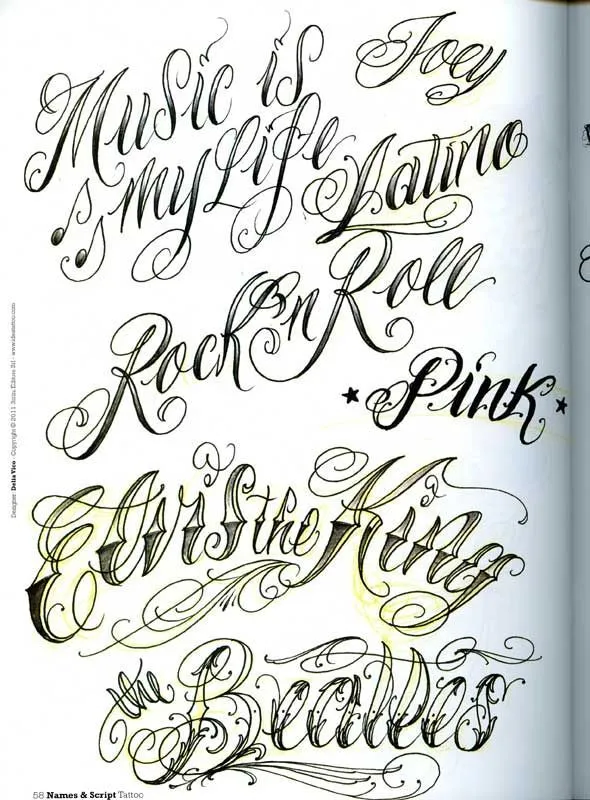 Music is
Joey
my life
Latino
Rock'n Roll
Pink
Elvis the King
the Beatles
Designer Delia Vico - Copyright © 2011
58 Names & Script Tattoo